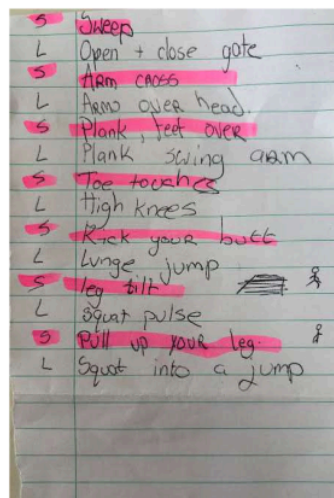 S Sweep
L Open + close gate
S ARM CROSS
L ARMS OVER head.
S Plank, feet OVER
L Plank swing ARM
S Toe touches
L High knees
S Kick your butt
L Lunge jump
S leg tilt
L Squat pulse
S Pull up YOUR leg.
L Squat into a jump